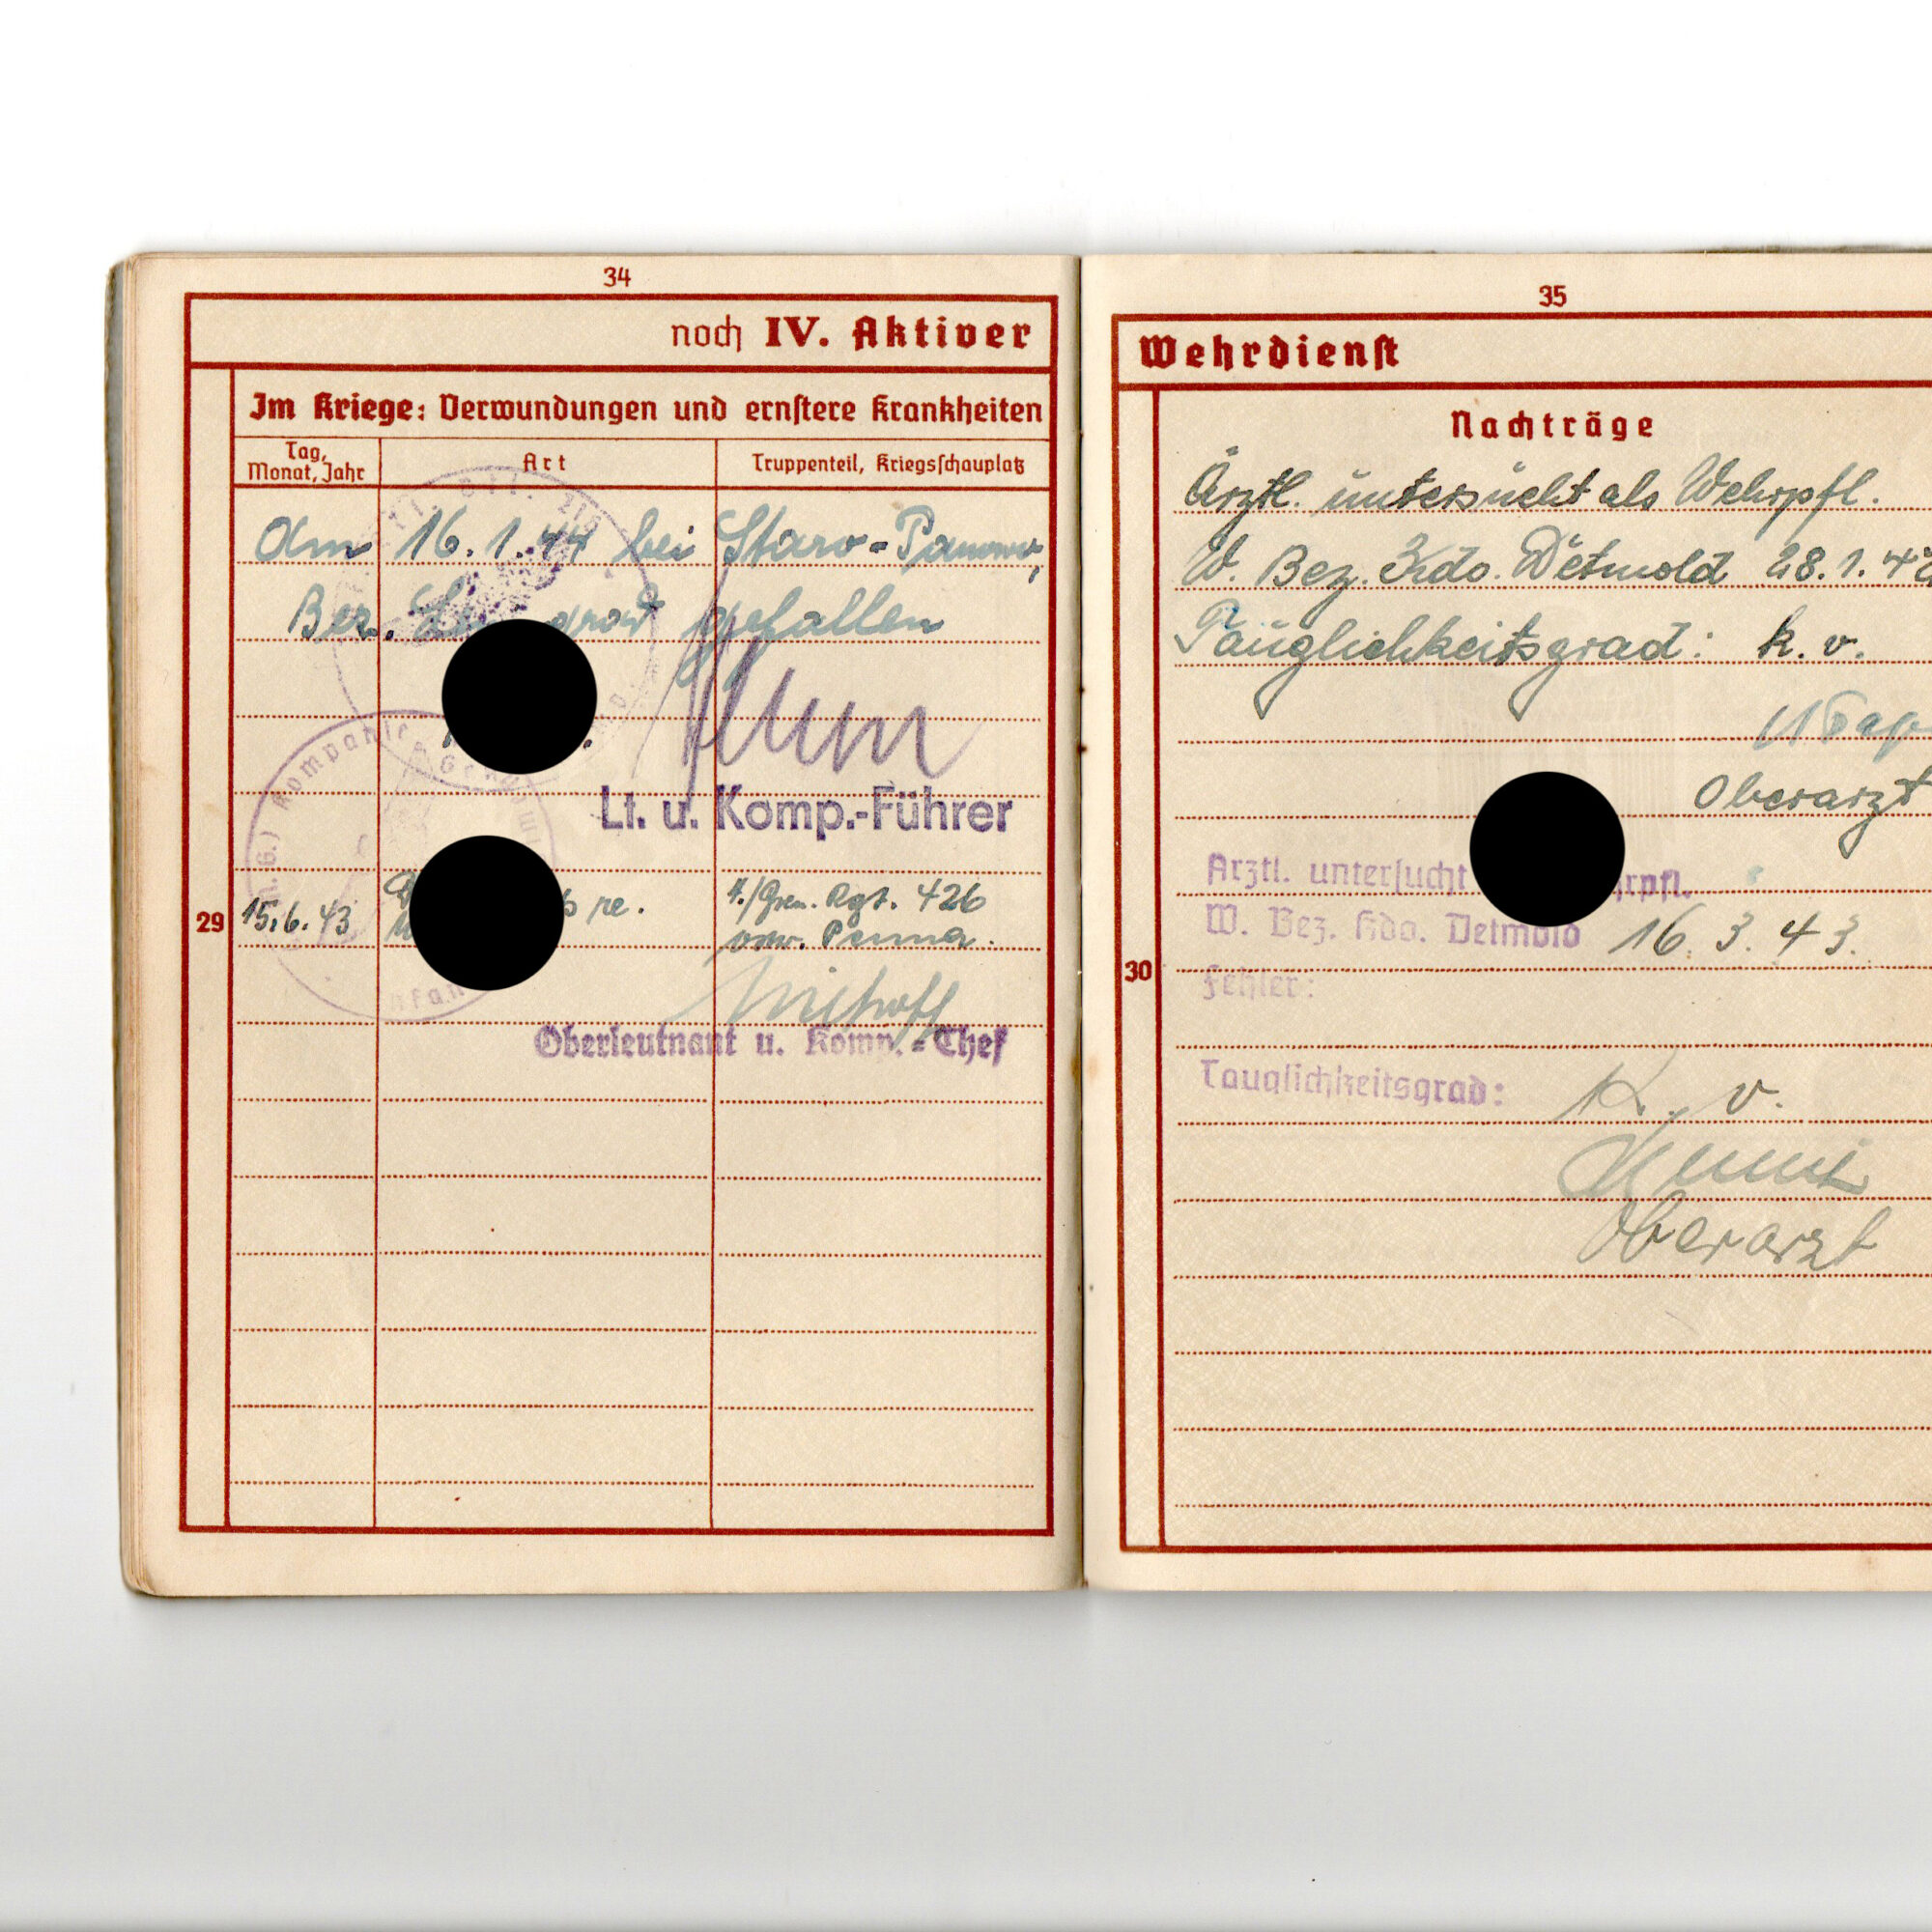 34
noch IV. Aktiver
Im Kriege: Verwundungen und ernstere Krankheiten
Tag, Monat, Jahr
Art
Truppenteil, Kriegsschauplatz
Am 16.1.44 bei Staro-Panowo,
Bez. gefallen
Lt. u. Komp.-Führer
29
15.6.43
4./Gren. Rgt. 426
Oberleutnant u. Komp.-Chef
35
Wehrdienst
Nachträge
Ärztl. untersucht als Wehrpfl.
W. Bez. Kdo. Detmold 28.1.4
Tauglichkeitsgrad: k. v.
Oberarzt
Arztl. untersucht
W. Bez. Kdo. Detmold 16.3.43.
30
Fehler:
Tauglichkeitsgrad: K. v.
Oberarzt